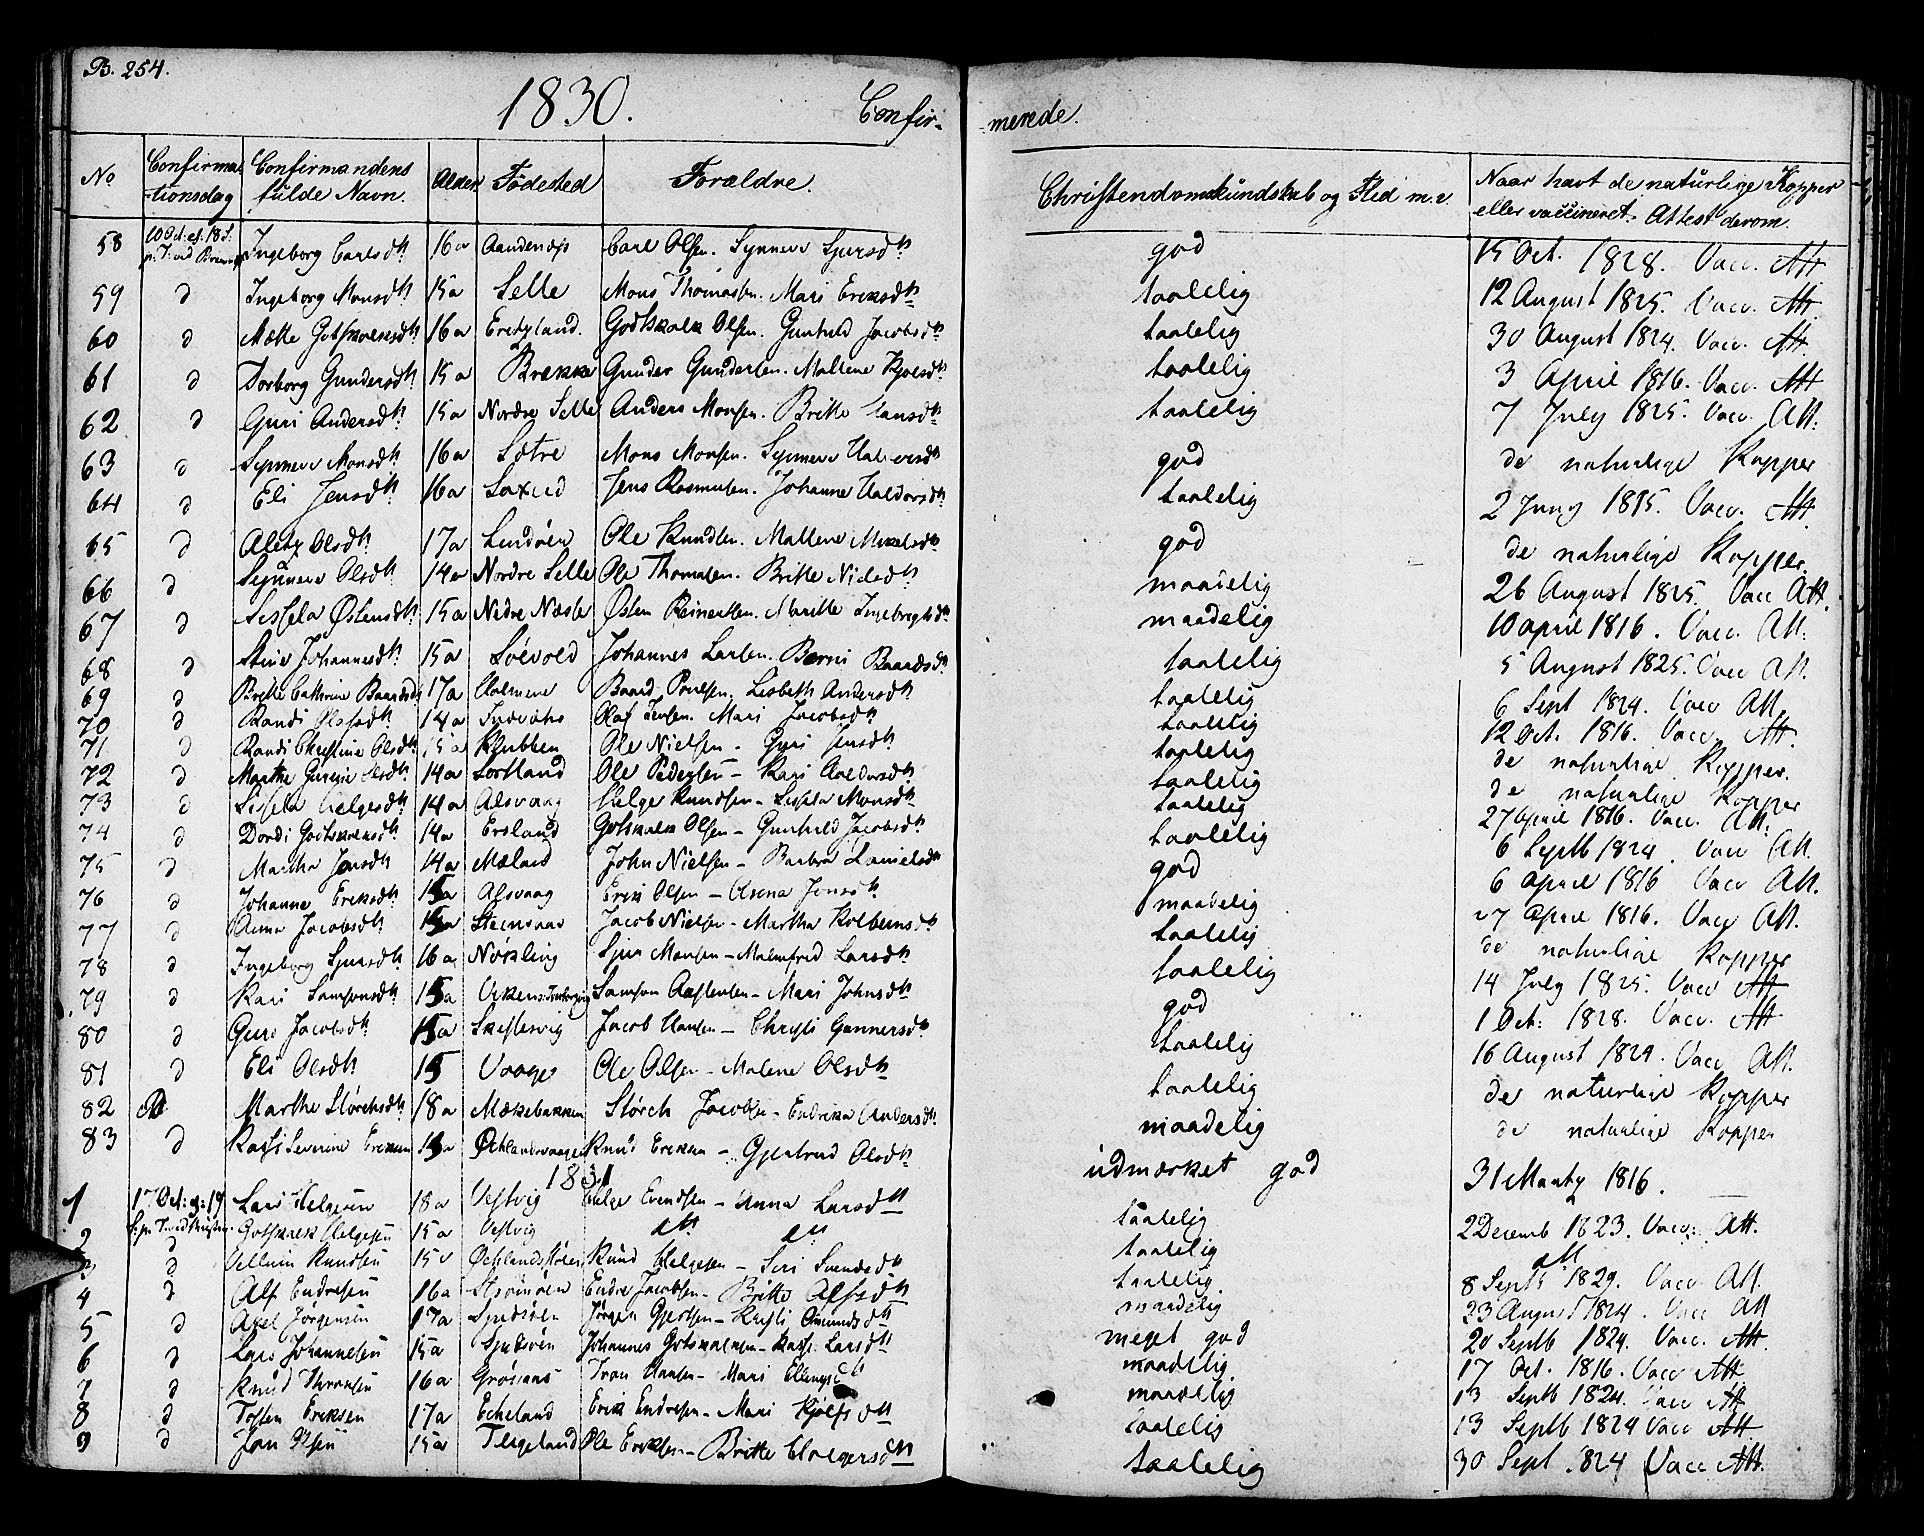 B. 254.
1830. Confir- merede.
No Confirma-tionsdag Confirmandens fulde Navn. Alder Födested Forældre. Christendomskundskab og Flid m.v. Naar havt de naturlige Kopper eller vaccineret. Attest derom.
58 Ingeborg Carlsdtr 16a Carl Olsen. Synneve Sjursdtr god 15 Oct. 1828. Vacc. Att
59 d Ingeborg Monsdtr 15a Selle Mons Thomassen. Mari Eriksdtr taalelig 12 August 1825. Vacc. Att.
60 d Mætte 16a Godskalk Olsen. Gunhild Jacobsdtr taalelig 30 August 1824. Vacc. Att.
61 d Torborg Gundersdtr 15a Brekke Gunder Gundersen. Mallene taalelig 3 April 1816. Vacc. Att
62 d Guri Andersdtr 15a Nordre Selle Anders Monsen. Britte Hansdtr taalelig 7 July 1825. Vacc. Att.
63 d Synneve Monsdtr 16a Sætre Mons Monsen. Synneve god de naturlige Kopper
64 d Eli Jensdtr 16a Jens Rasmusen. Johanne Haldorsdtr taalelig 2 Juny 1815. Vacc. Att
65 d Olsdtr 17a Lindöen Ole Knudsen. Mallene Mikelsdtr god de naturlige Kopper.
66 d Synneve Olsdtr 14a Nordre Selle Ole Thomasen. Britte Nilsdtr maadelig 26 August 1825. Vacc Att.
67 d Sissela Østensdtr 15a Nedre Næsse Østen Reinertsen. Maritte maadelig 10 april 1816. Vacc. Att.
68 d Stine Johannesdtr 15a Johannes Larsen. Berni Baardsdtr taalelig 5 August 1825. Vacc Att.
69 d Britte Cathrine Baardsdtr 17a Holmene Baard Poulsen. Lisbeth Andersdtr taalelig 6 Sept 1824. Vacc Att.
70 d Randi Olafsdtr 14a Olaf Jensen. Mari Jacobsdtr taalelig 12 Oct. 1816. Vacc. Att.
71 d Randi Christine Olsdtr 15a Klubben Ole Nielsen - Guri Jensdtr taalelig de naturlige Kopper.
72 d Marthe Olsdtr 14a Lortland Ole Pedersen - Kari Haldorsdtr taalelig de naturlige Kopper
73 d Sissela Helgesdtr 14a Alsvaag Helge Knudsen - Sissela Monsdtr taalelig 27 April 1816. Vacc. Att.
74 d Dordi Godtskalksdtr 14a Ersland Gotskalk Olsen - Gunhild Jacobsdtr taalelig 6 Septb 1824. Vacc Att.
75 d Martha Jonsdtr 14a Mæland John Nielsen - Barbra Danielsdtr god 6 april 1816 Vacc Att.
76 d Johanne Eriksdtr 15a Alsvaag Erik Olsen - Jonsdtr maadelig 27 April 1816. Vacc Att.
77 d Anna Jacobsdtr 15a Jacob Nielsen - Martha Kolbeinsdtr taalelig de naturlige Kopper
78 d Ingeborg Sjursdtr 16a Nøkling Sjur Monsen - Malmfred Larsdtr taalelig 14 July 1825. Vacc Att
79 d Kari Samsonsdtr 15a Samson - Mari Johnsdtr god 1 Oct: 1828. Vacc. Att
80 d Guri Jacobsdtr 15a Jacob Hansen - Christi Gunnersdtr taalelig 16 August 1829. Vacc Att.
81 d Eli Olsdtr 15 Vaage Ole Olsen - Malene Olsdtr taalelig de naturlige Kopper
82 Marthe Störchsdtr 18a Mækebakken Störch Jacobsen - Endrika Andersdtr maadelig de naturlige Kopper
83 d Severine 15a Knud Eriksen - Gjertrud Olsdtr udmærket god 31 Martz 1816.
1831
1 17 Oct: Lars Helgesen 18a Vestvig Helge Evendsen - Anna Larsdtr taalelig 2 Decemb 1823. Vacc: Att.
2 d Gotskalk Helgesen 15a Vestvig dtt dtt taalelig dtt
3 d Vellum Knudsen 15a Knud Helgesen - Siri Svendsdtr taalelig 8 Septb 1829. Vacc Att.
4 d Alf Endresen 16a Endre Jacobsen - Britte Alfsdtr maadelig 23 August 1824. Vacc Att
5 d Axel Jørgensen 17a Jörgen Gjertsen - Kristi Amundsdtr meget god 20 Septb 1824. Vacc. Att.
6 d Lars Johannesen 15a Johannes Gotskalksen - Larsdtr maadelig 17 Oct. 1816. Vacc Att
7 d Knud 16a Hansen - Mari maadelig 13 Septb 1824. Vacc Att
8 d Tosten Eriksen 17a Echeland Erik Endresen - Mari taalelig 13 Septb 1824 Vacc Att.
9 d Jon Olsen 15a Tegeland Ole Eriksen - Britte Holgersdtr taalelig 30 Sept 1824 Vacc Att.